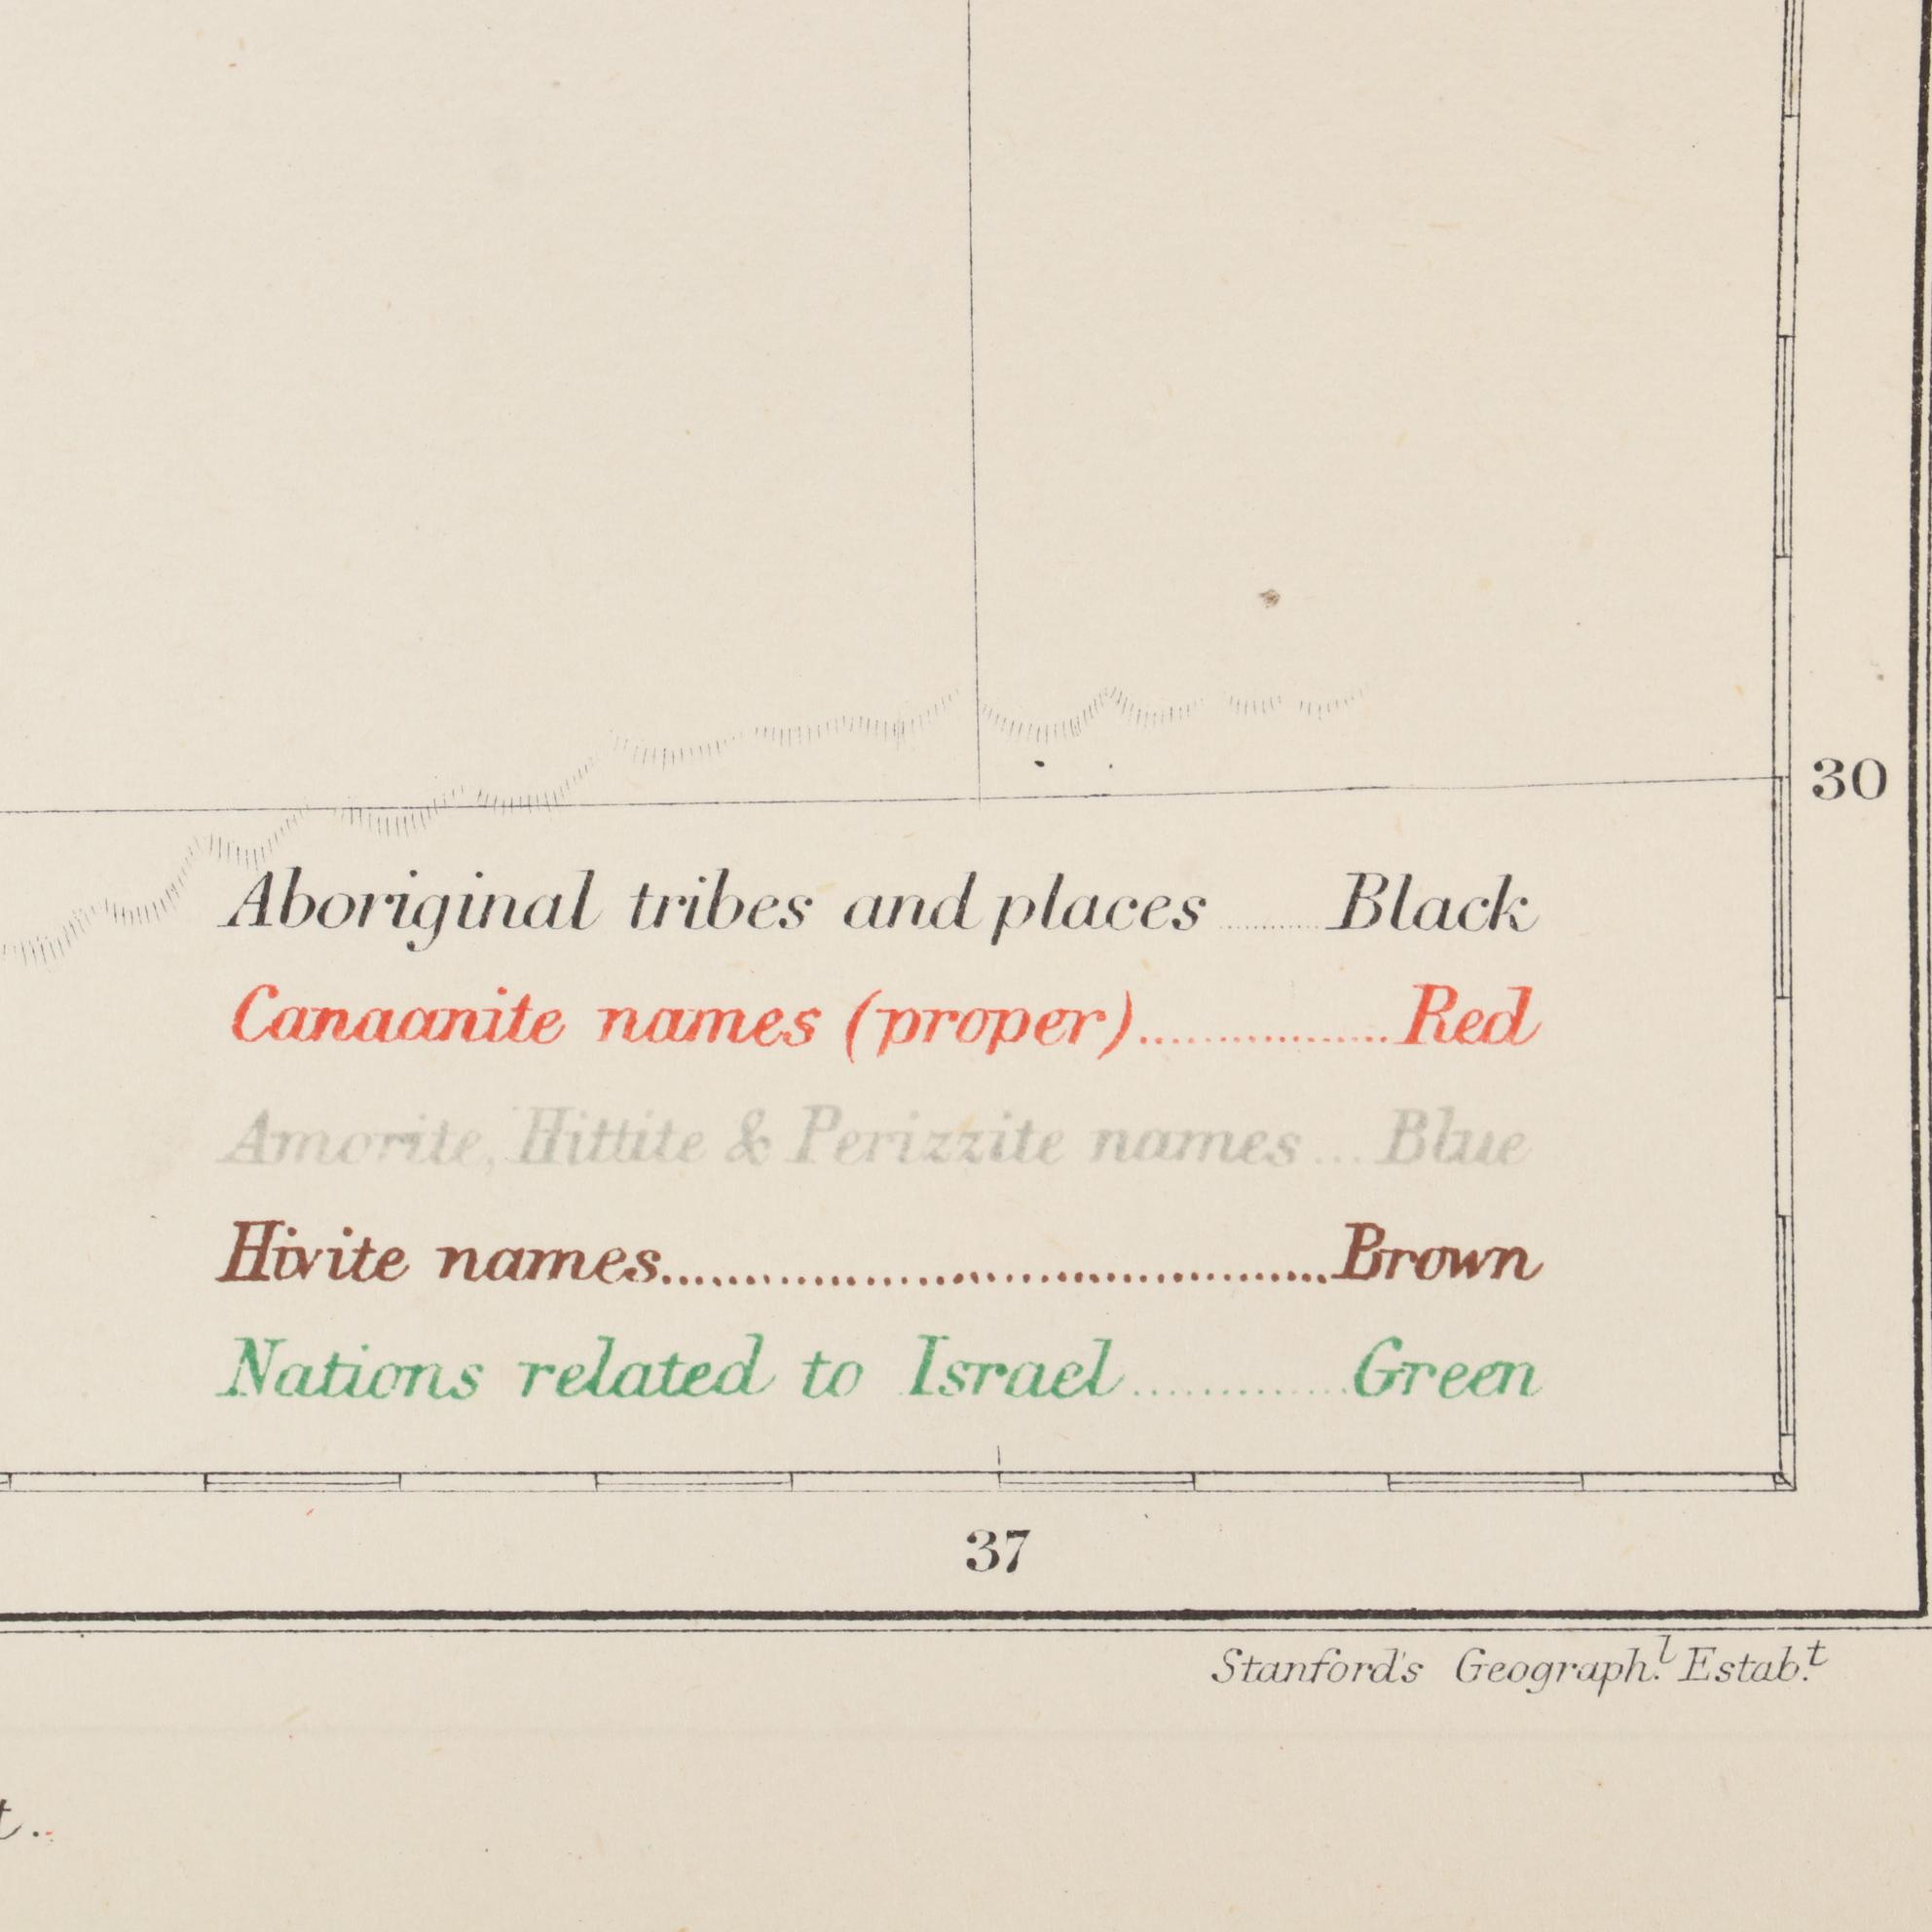 30
Aboriginal tribes and places ........ Black
Canaanite names (proper) ................ Red
Amorite, Hittite & Perizzite names ... Blue
Hivite names ........................................ Brown
Nations related to Israel ............. Green
37
Stanford's Geograph.l Estab.t
t.